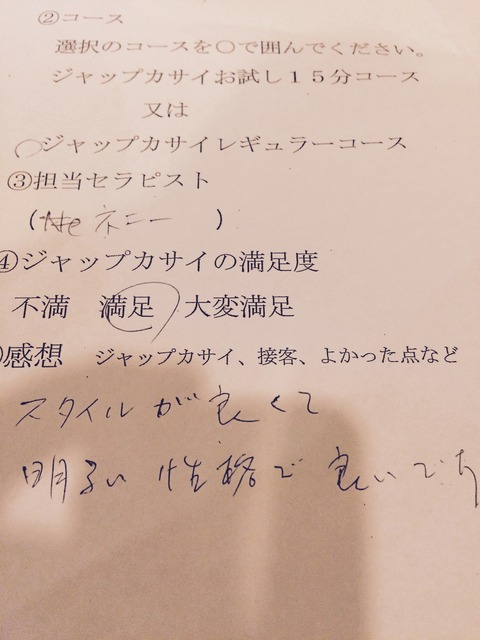 ②コース
選択のコースを○で囲んでください。
ジャップカサイお試し15分コース
又は
○ジャップカサイレギュラーコース
③担当セラピスト
( ネニー )
④ジャップカサイの満足度
不満 満足 大変満足
感想 ジャップカサイ、接客、よかった点など
スタイルが良くて
明るい性格で良いです